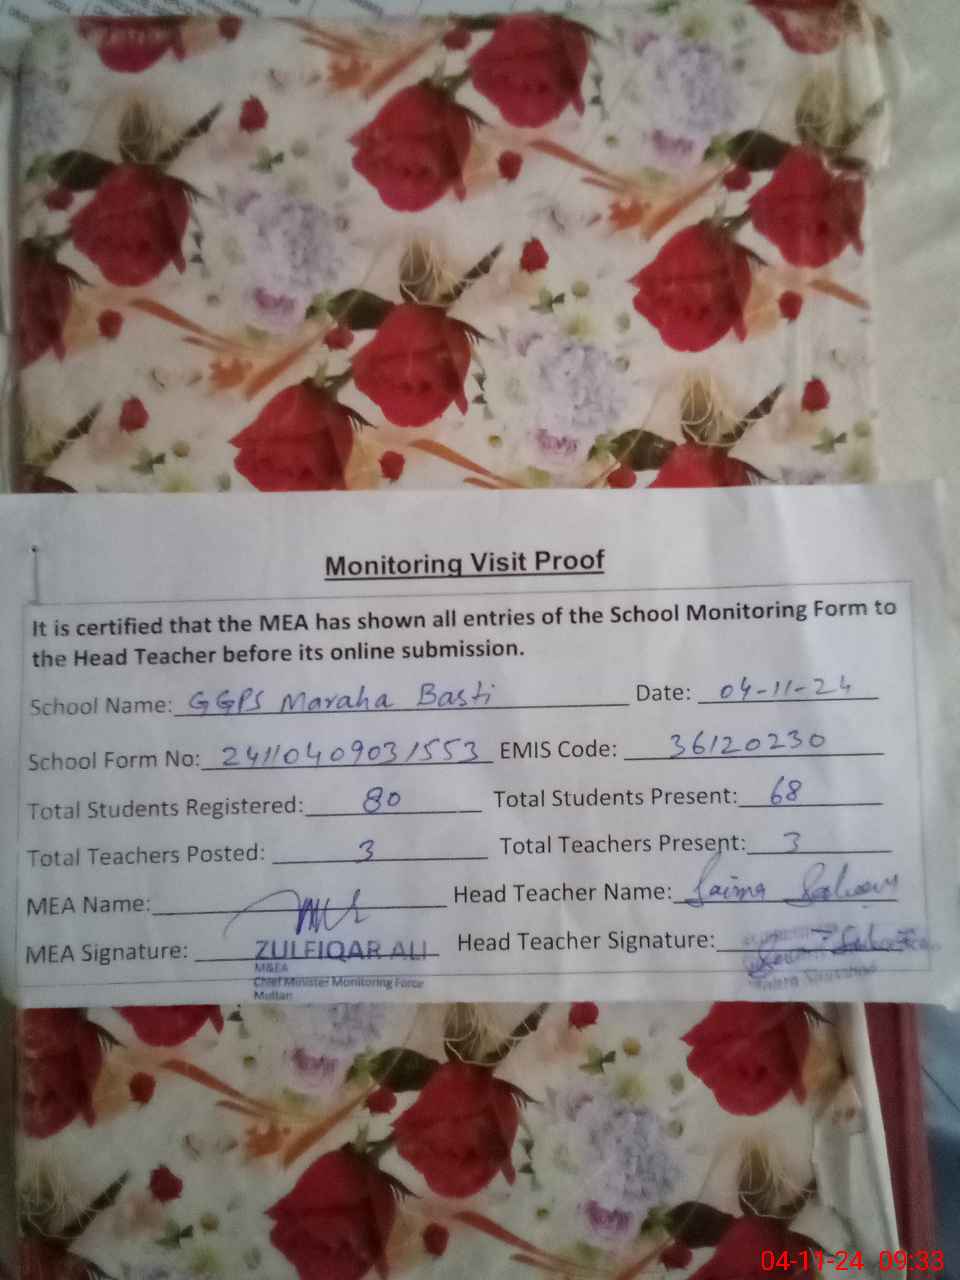 Monitoring Visit Proof
It is certified that the MEA has shown all entries of the School Monitoring Form to
the Head Teacher before its online submission.
School Name: GGPS Maraha Basti Date: 04-11-24
School Form No: 24110409031553 EMIS Code: 36120230
Total Students Registered: 80 Total Students Present: 68
Total Teachers Posted: 3 Total Teachers Present: 3
MEA Name: Head Teacher Name: Saima
MEA Signature: ZULFIQAR ALI Head Teacher Signature:
M&EA
Chief Minister Monitoring Force
Multan
04-11-24 09:33